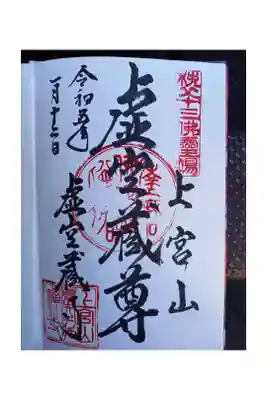 秩父十三佛霊場
上宮山
虚空蔵尊
令和五年
一月十三日
虚空蔵寺